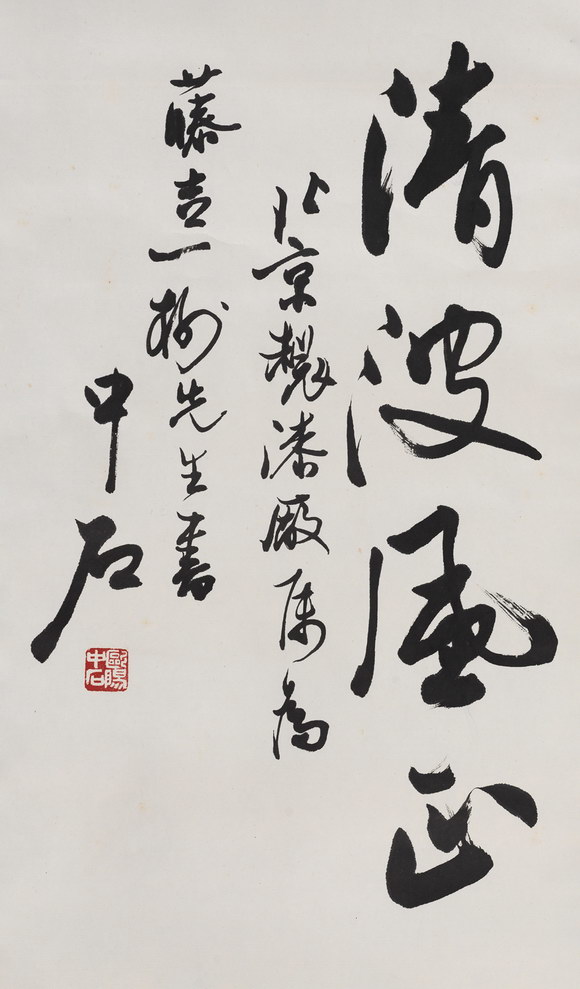 清波风正
北京製漆廠属為
藤吉一樹先生書
中石
歐陽中石